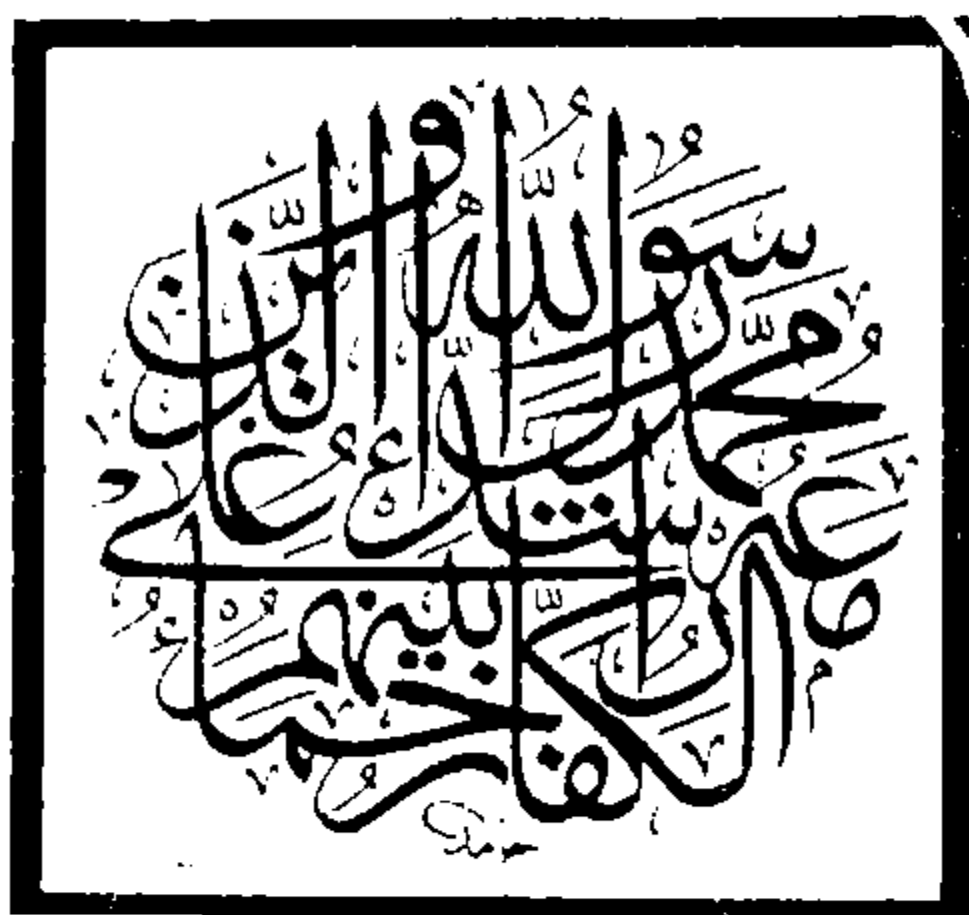 محمد رسول الله والذين معه أشداء على الكفار رحماء بينهم